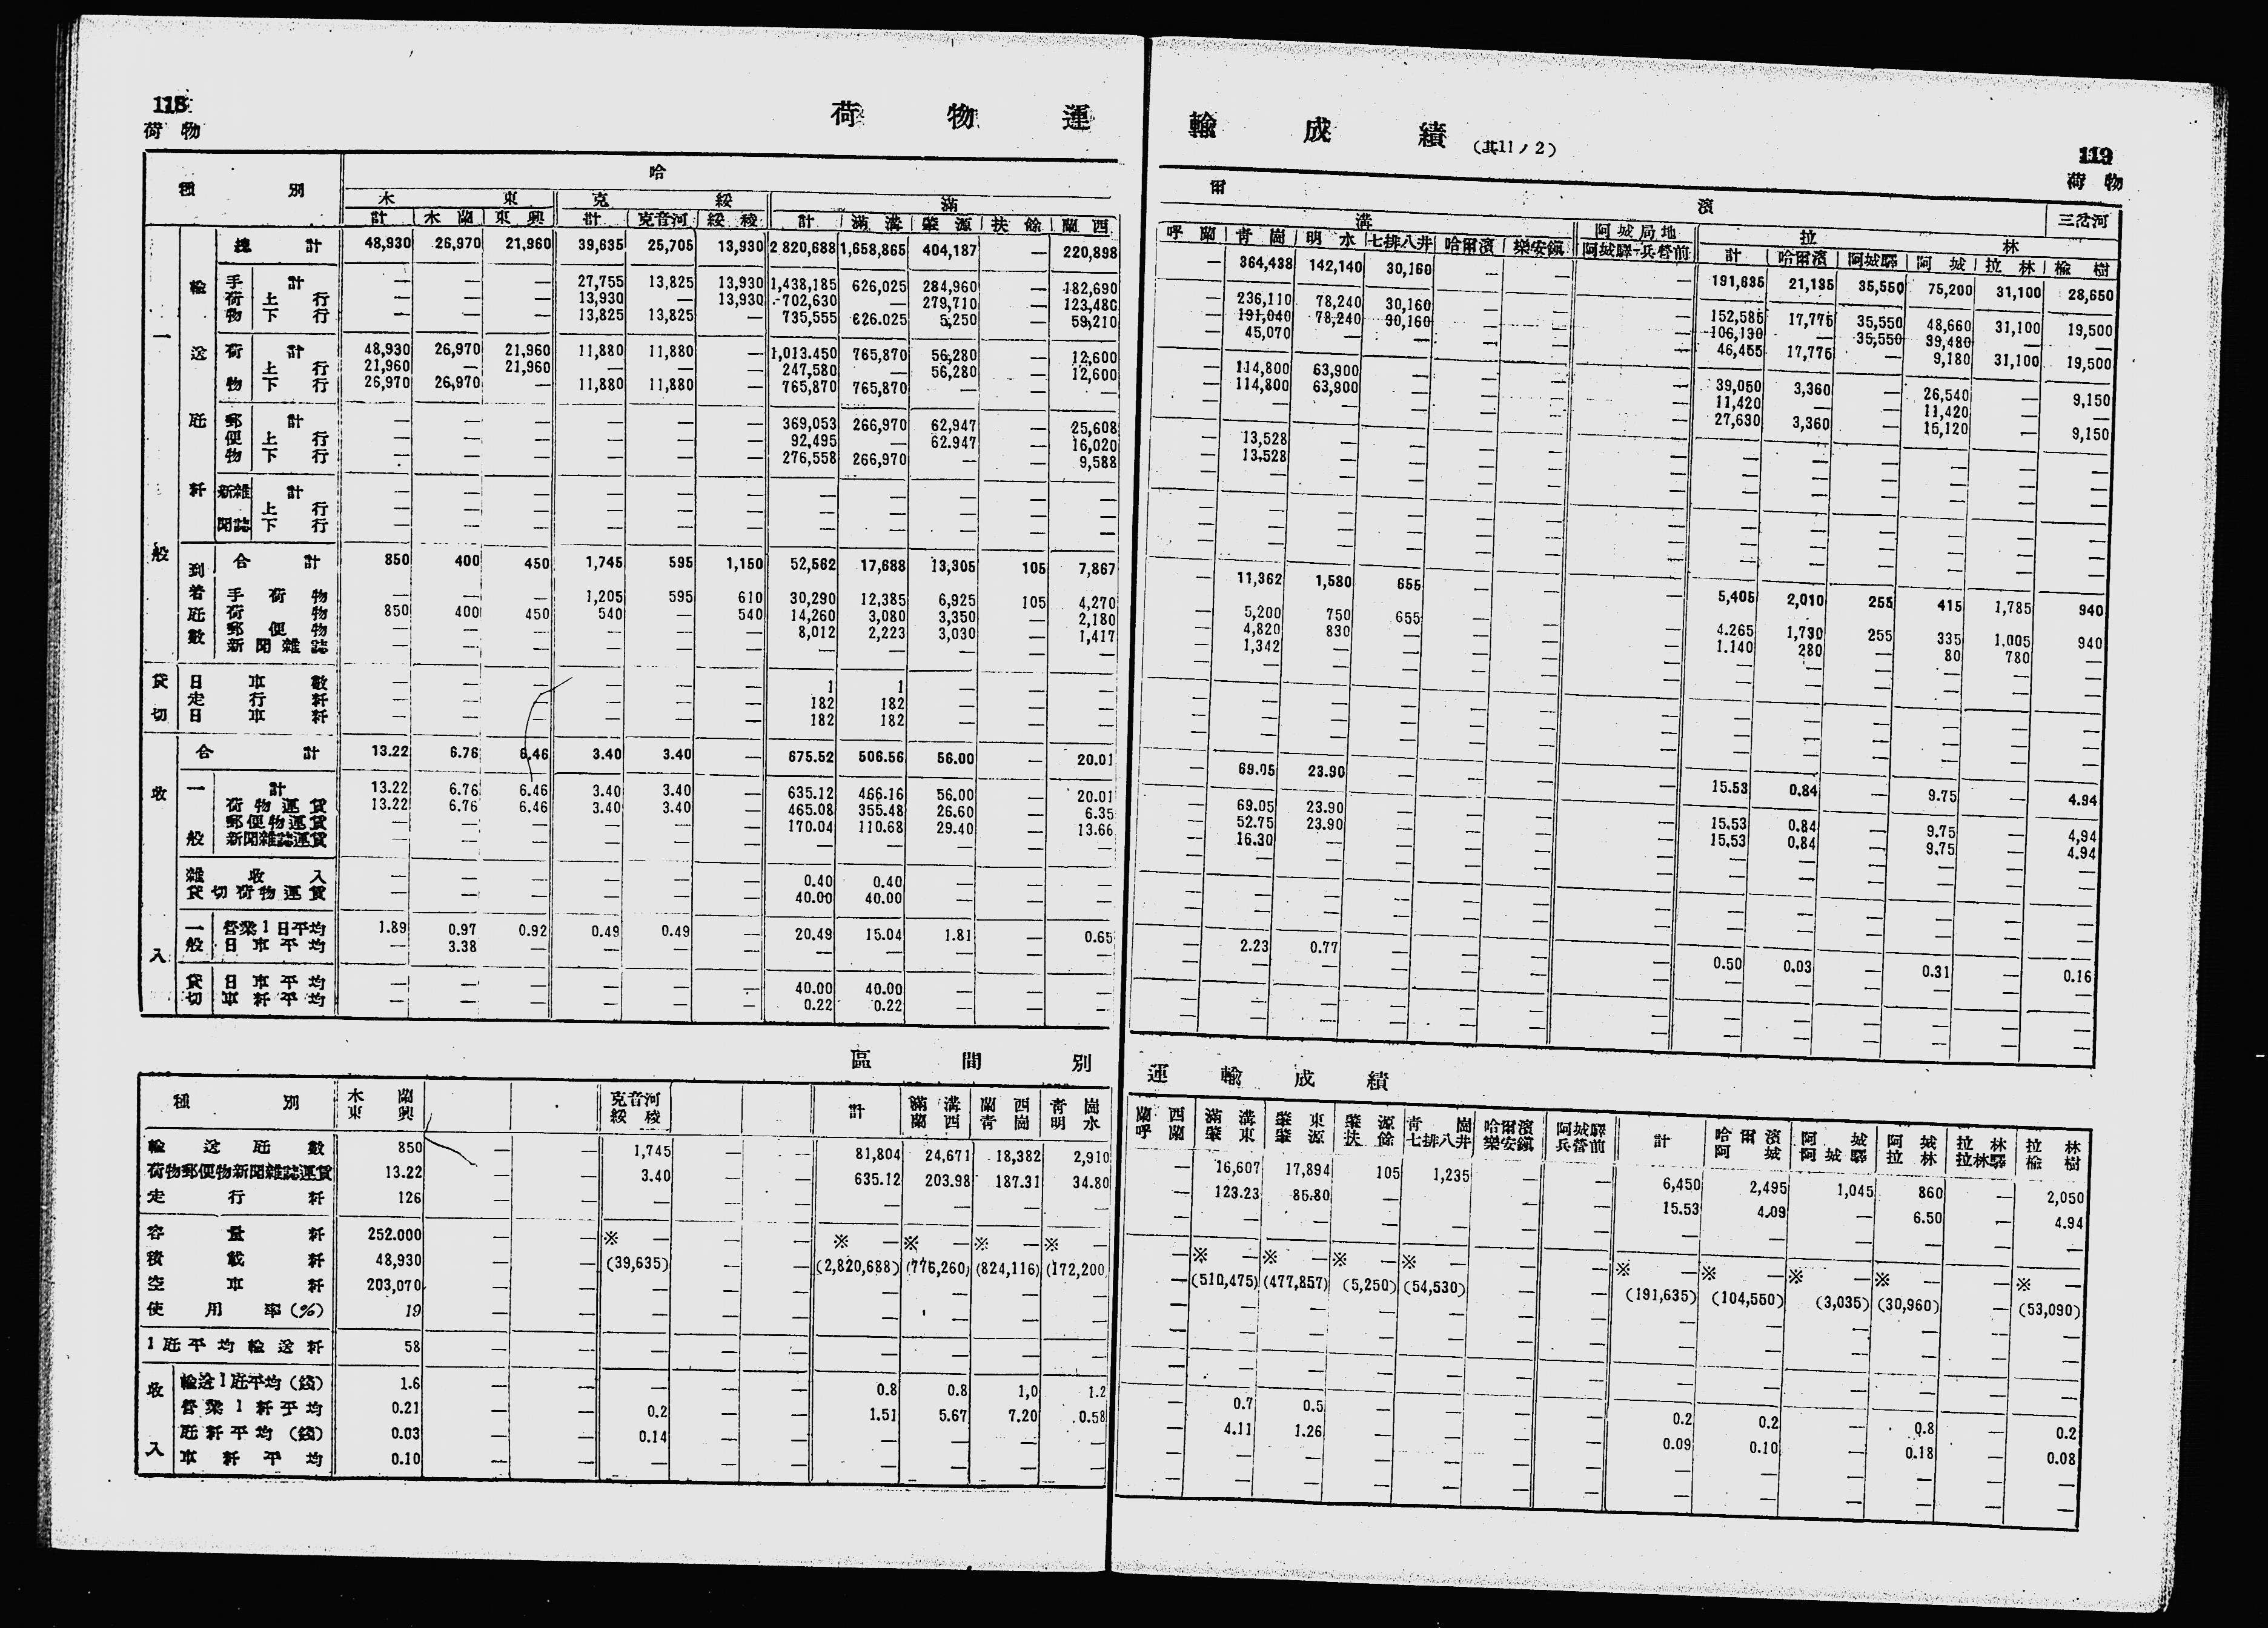 118
荷物
荷物運
種別 哈
木東 克綏 滿
計 木蘭 東興 計 克音河 綏稜 計 滿溝 肇源 扶餘 蘭西
總計 48,930 26,970 21,960 39,635 25,705 13,930 2,820,688 1,658,865 404,187 — 220,898
手荷物 計 — — — 27,755 13,825 13,930 1,438,185 626,025 284,960 — 182,690
上行 — — — 13,930 — 13,930 702,630 — 279,710 — 123,480
下行 — — — 13,825 13,825 — 735,555 626.025 5,250 — 59,210
荷物 計 48,930 26,970 21,960 11,880 11,880 — 1,013.450 765,870 56,280 — 12,600
上行 21,960 — 21,960 — — — 247,580 — 56,280 — 12,600
下行 26,970 26,970 — 11,880 11,880 — 765,870 765,870 — — —
郵便物 計 — — — — — — 369,053 266,970 62,947 — 25,608
上行 — — — — — — 92,495 — 62.947 — 16,020
下行 — — — — — — 276,558 266,970 — — 9,588
新聞雜誌 計 — — — — — — — — — — —
上行 — — — — — — — — — — —
下行 — — — — — — — — — — —
合計 850 400 450 1,745 595 1,150 52,562 17,688 13,305 105 7,867
手荷物 — — — 1,205 595 610 30,290 12,385 6,925 105 4,270
荷物 850 400 450 540 — 540 14,260 3,080 3,350 — 2,180
郵便物 — — — — — — 8,012 2,223 3,030 — 1,417
新聞雜誌 — — — — — — — — — — —
貸切 日車數 — — — — — — 1 1 — — —
走行粁 — — — — — — 182 182 — — —
日車粁 — — — — — — 182 182 — — —
合計 13.22 6.76 6.46 3.40 3.40 — 675.52 506.56 56.00 — 20.01
收入 一般 計 13.22 6.76 6.46 3.40 3.40 — 635.12 466.16 56.00 — 20.01
荷物運賃 13.22 6.76 6.46 3.40 3.40 — 465.08 355.48 26.60 — 6.35
郵便物運賃 — — — — — — 170.04 110.68 29.40 — 13.66
新聞雜誌運賃 — — — — — — — — — — —
雜收入 — — — — — — 0.40 0.40 — — —
貸切荷物運賃 — — — — — — 40.00 40.00 — — —
一般 營業1日平均 1.89 0.97 0.92 0.49 0.49 — 20.49 15.04 1.81 — 0.65
日車平均 — 3.38 — — — — — — — — —
貸切 日車平均 — — — — — — 40.00 40.00 — — —
車粁平均 — — — — — — 0.22 0.22 — — —
區間別
種別 木蘭東興 克音河綏稜 計 滿溝蘭西 蘭西青崗 青崗明水
輸送瓩數 850 — — 1,745 — — 81,804 24,671 18,382 2,910
荷物郵便物新聞雜誌運賃 13.22 — — 3.40 — — 635.12 203.98 187.31 34.80
走行粁 126 — — — — — — — — —
容量粁 252.000 — — ※ — — — ※ — ※ — ※ — ※ —
積載粁 48,930 — — (39,635) — — (2,820,688) (776,260) (824,116) (172,200)
空車粁 203,070 — — — — — — — — —
使用率(%) 19 — — — — — — — — —
1瓩平均輸送粁 58 — — — — — — — — —
收入 輸送1瓩平均(錢) 1.6 — — — — — 0.8 0.8 1,0 1.2
營業1粁平均 0.21 — — 0.2 — — 1.51 5.67 7.20 0.58
瓩粁平均(錢) 0.03 — — 0.14 — — — — — —
車粁平均 0.10 — — — — — — — — —
輸成績(其11ノ2)
119
荷物
爾濱 三岔河
溝 阿城局地 拉林
呼蘭 青崗 明水 七排八井 哈爾濱 樂安鎭 阿城驛-兵營前 計 哈爾濱 阿城驛 阿城 拉林 楡樹
— 364,438 142,140 30,160 — — — 191,635 21,135 35,550 75,200 31,100 28,650
— 236,110 78,240 30,160 — — — 152,585 17,775 35,550 48,660 31,100 19,500
— 191,040 78,240 30,160 — — — 106,130 — 35,550 39,480 — —
— 45,070 — — — — — 46,455 17,775 — 9,180 31,100 19,500
— 114,800 63,900 — — — — 39,050 3,360 — 26,540 — 9,150
— 114,800 63,900 — — — — 11,420 — — 11,420 — —
— — — — — — — 27,630 3,360 — 15,120 — 9,150
— 13,528 — — — — — — — — — — —
— 13,528 — — — — — — — — — — —
— — — — — — — — — — — — —
— — — — — — — — — — — — —
— — — — — — — — — — — — —
— — — — — — — — — — — — —
— 11,362 1,580 655 — — — 5,405 2,010 255 415 1,785 940
— 5,200 750 655 — — — 4.265 1,730 255 335 1,005 940
— 4,820 830 — — — — 1.140 280 — 80 780 —
— 1,342 — — — — — — — — — — —
— — — — — — — — — — — — —
— — — — — — — — — — — — —
— — — — — — — — — — — — —
— — — — — — — — — — — — —
— 69.05 23.90 — — — — 15.53 0.84 — 9.75 — 4.94
— 69.05 23.90 — — — — 15.53 0.84 — 9.75 — 4,94
— 52.75 23.90 — — — — 15.53 0.84 — 9.75 — 4.94
— 16.30 — — — — — — — — — — —
— — — — — — — — — — — — —
— — — — — — — — — — — — —
— — — — — — — — — — — — —
— 2.23 0.77 — — — — 0.50 0.03 — 0.31 — 0.16
— — — — — — — — — — — — —
— — — — — — — — — — — — —
— — — — — — — — — — — — —
運輸成績
蘭西呼蘭 滿溝肇東 肇東肇源 肇源扶餘 青崗七排八井 哈爾濱樂安鎭 阿城驛兵營前 計 哈爾濱阿城 阿城阿城驛 阿城拉林 拉林拉林驛 拉林楡樹
— 16,607 17,894 105 1,235 — — 6,450 2,495 1,045 860 — 2,050
— 123.23 85.80 — — — — 15.53 4.09 — 6.50 — 4.94
— — — — — — — — — — — — —
— ※ — ※ — ※ — ※ — — — ※ — ※ — ※ — ※ — — ※ —
— (510,475) (477,857) (5,250) (54,530) — — (191,635) (104,550) (3,035) (30,960) — (53,090)
— — — — — — — — — — — — —
— — — — — — — — — — — — —
— — — — — — — — — — — — —
— 0.7 0.5 — — — — 0.2 0.2 — 0.8 — 0.2
— 4.11 1.26 — — — — 0.09 0.10 — 0.18 — 0.08
— — — — — — — — — — — — —
— — — — — — — — — — — — —